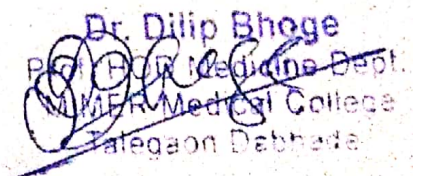 Dr. Dilip Bhoge
Prof. HOD Medicine Dept.
MIMER Medical College
Talegaon Dabhade